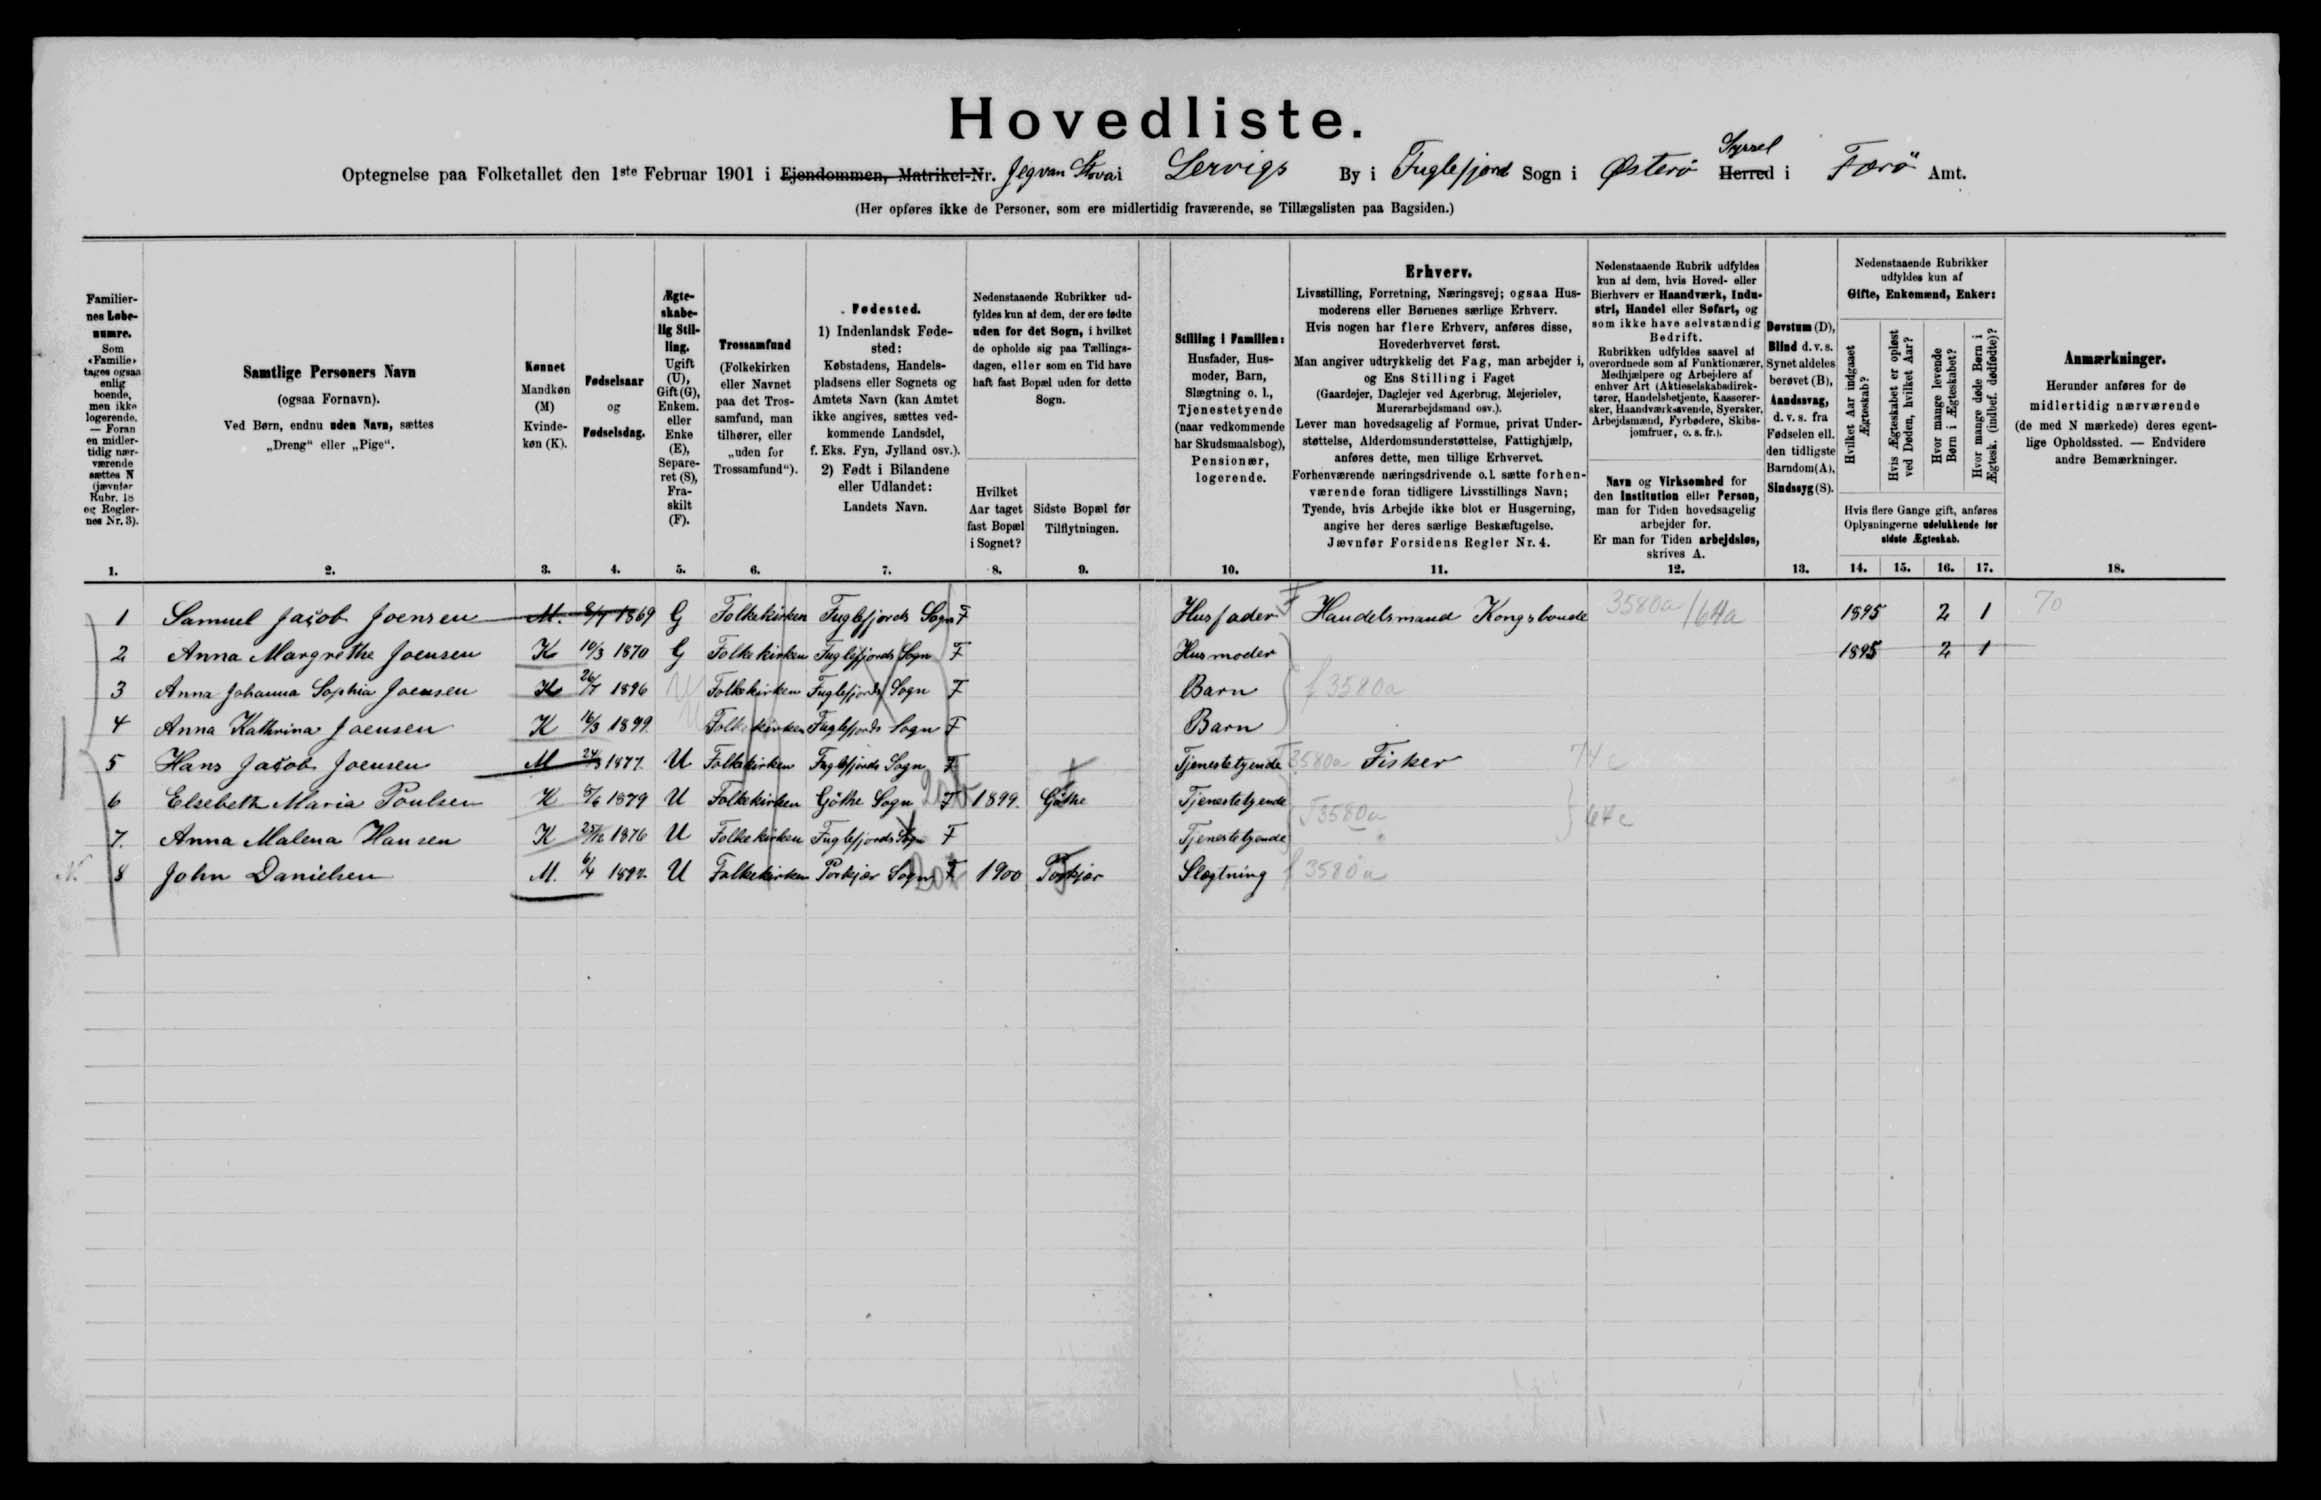 Hovedliste.
Optegnelse paa Folketallet den 1ste Februar 1901 i Ejendommen, Matrikel-Nr. Jegvan Stova i Lervigs By i Fuglefjord Sogn i Østerö Herred Syssel i Færö Amt.
(Her opføres ikke de Personer, som ere midlertidig fraværende, se Tillægslisten paa Bagsiden.)
Familiernes Løbenumre.
Som «Familie» tages ogsaa enlig boende, men ikke logerende. — Foran en midlertidig nærværende sættes N (jævnfør Rubr. 18 og Reglernes Nr. 3).
Samtlige Personers Navn
(ogsaa Fornavn).
Ved Børn, endnu uden Navn, sættes
„Dreng“ eller „Pige“.
Kønnet
Mandkøn (M)
Kvindekøn (K).
Fødselsaar
og
Fødselsdag.
Ægteskabelig Stilling.
Ugift (U), Gift (G), Enkem. eller Enke (E), Separeret (S), Fraskilt (F).
Trossamfund
(Folkekirken eller Navnet paa det Trossamfund, man tilhører, eller „uden for Trossamfund“).
Fødested.
1) Indenlandsk Fødested:
Købstadens, Handelspladsens eller Sognets og Amtets Navn (kan Amtet ikke angives, sættes vedkommende Landsdel, f. Eks. Fyn, Jylland osv.).
2) Født i Bilandene eller Udlandet:
Landets Navn.
Nedenstaaende Rubrikker udfyldes kun af dem, der ere fødte uden for det Sogn, i hvilket de opholde sig paa Tællingsdagen, eller som en Tid have haft fast Bopæl uden for dette Sogn.
Hvilket Aar taget fast Bopæl i Sognet?
Sidste Bopæl før Tilflytningen.
Stilling i Familien:
Husfader, Husmoder, Barn, Slægtning o. l., Tjenestetyende (naar vedkommende har Skudsmaalsbog), Pensionær, logerende.
Erhverv.
Livsstilling, Forretning, Næringsvej; ogsaa Husmoderens eller Børnenes særlige Erhverv.
Hvis nogen har flere Erhverv, anføres disse, Hovederhvervet først.
Man angiver udtrykkelig det Fag, man arbejder i, og Ens Stilling i Faget
(Gaardejer, Daglejer ved Agerbrug, Mejerielev, Murerarbejdsmand osv.).
Lever man hovedsagelig af Formue, privat Understøttelse, Alderdomsunderstøttelse, Fattighjælp, anføres dette, men tillige Erhvervet.
Forhenværende næringsdrivende o. l. sætte forhenværende foran tidligere Livsstillings Navn;
Tyende, hvis Arbejde ikke blot er Husgerning, angive her deres særlige Beskæftigelse.
Jævnfør Forsidens Regler Nr. 4.
Nedenstaaende Rubrik udfyldes kun af dem, hvis Hoved- eller Bierhverv er Haandværk, Industri, Handel eller Søfart, og som ikke have selvstændig Bedrift.
Rubrikken udfyldes saavel af overordnede som af Funktionærer, Medhjælpere og Arbejdere af enhver Art (Aktieselskabsdirektører, Handelsbetjente, Kasserersker, Haandværksavende, Syersker, Arbejdsmænd, Fyrbødere, Skibsjomfruer, o. s. fr.).
Navn og Virksomhed for den Institution eller Person, man for Tiden hovedsagelig arbejder for.
Er man for Tiden arbejdsløs, skrives A.
Døvstum (D), Blind d. v. s. Synet aldeles berøvet (B), Aandssvag, d. v. s. fra Fødselen ell. den tidligste Barndom (A), Sindssyg (S).
Nedenstaaende Rubrikker udfyldes kun af
Gifte, Enkemænd, Enker:
Hvilket Aar indgaaet Ægteskab?
Hvis Ægteskabet er opløst ved Døden, hvilket Aar?
Hvor mange levende Børn i Ægteskabet?
Hvor mange døde Børn i Ægtesk. (indbef. dødfødte)?
Hvis flere Gange gift, anføres Oplysningerne udelukkende for sidste Ægteskab.
Anmærkninger.
Herunder anføres for de midlertidig nærværende (de med N mærkede) deres egentlige Opholdssted. — Endvidere andre Bemærkninger.
1. 2. 3. 4. 5. 6. 7. 8. 9. 10. 11. 12. 13. 14. 15. 16. 17. 18.
1 Samuel Jacob Joensen M. 8/7 1869 G Folkekirken Fuglefjords Sogn F Husfader Handelsmand Kongsbonde 3580a /64a 1895 2 1 70
2 Anna Margrethe Joensen K 10/3 1870 G Folkekirken Fuglefjords Sogn F Husmoder 1895 2 1
3 Anna Johanna Sophia Joensen K 26/7 1896 Folkekirken Fuglefjords Sogn F Barn f 3580a
4 Anna Kathrina Joensen K 16/3 1899 Folkekirken Fuglefjords Sogn F Barn
5 Hans Jacob Joensen M 24/3 1877. U Folkekirken Fuglefjords Sogn F Tjenestetyende 3580a Fisker 74c
6 Elsebeth Maria Poulsen K 8/6 1879 U Folkekirken Göthe Sogn F 1899. Göthe Tjenestetyende
7. Anna Malena Hansen K 25/12 1876 U Folkekirken Fuglefjords Sogn F Tjenestetyende 3580a 64c
N. 8 John Danielsen M. 6/4 1892. U Folkekirken Porkjær Sogn F 1900 Porkjær Slægtning f 3580a